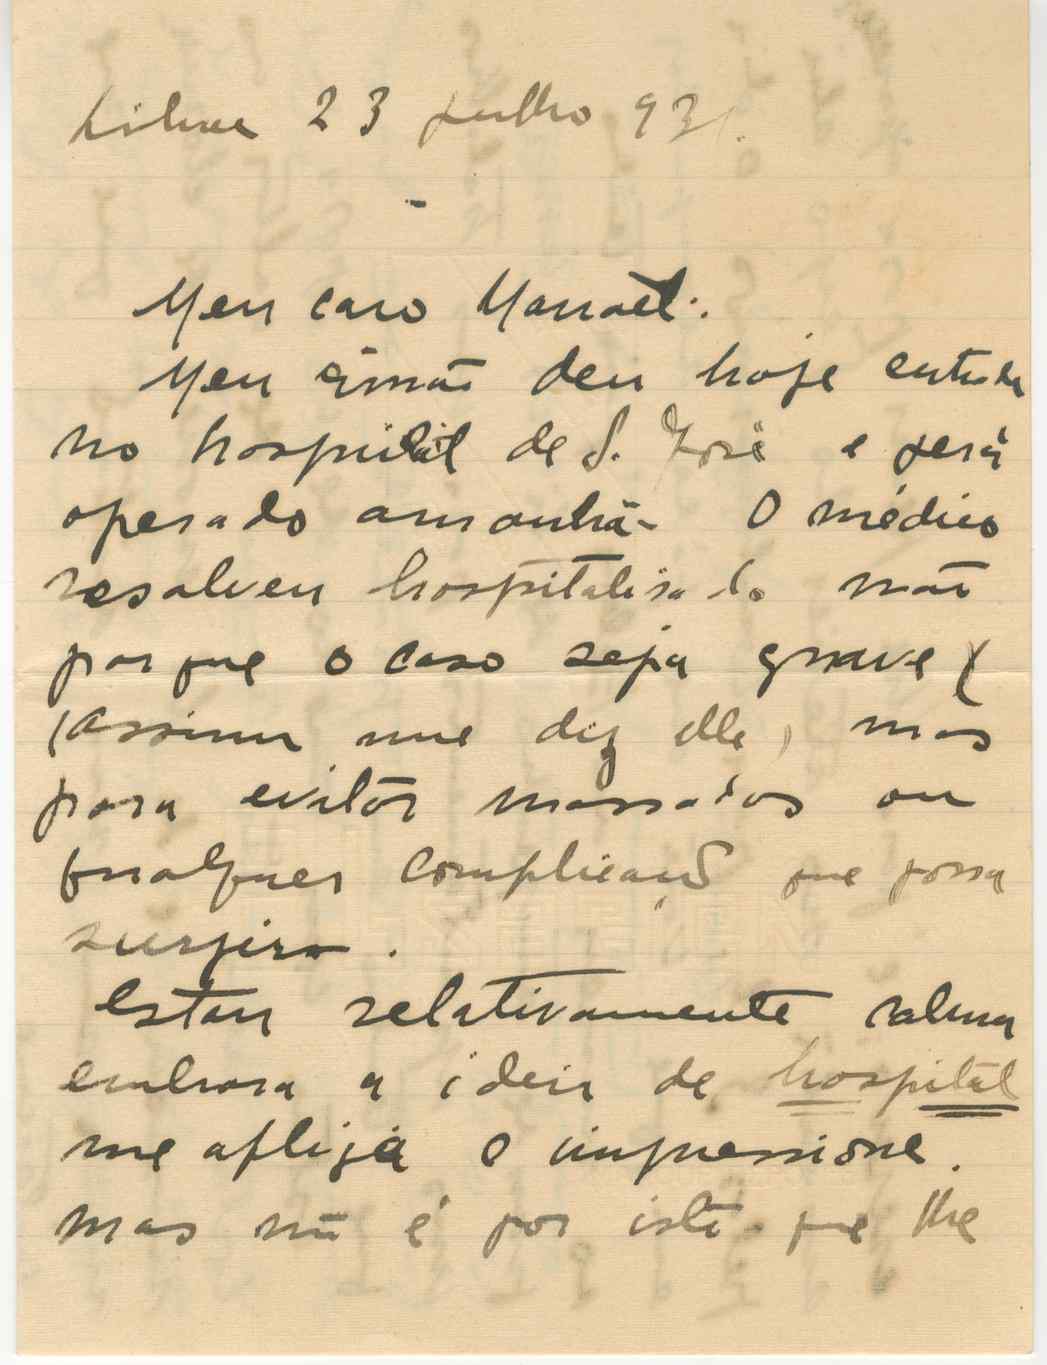 Lisboa 23 julho 931.
Meu caro Manoel:
Meu irmão deu hoje entrada
no hospital de S. José e será
operado amanhã. O médico
resolveu hospitalisa-lo não
porque o caso seja grave
(assim me diz elle) mas
para evitar massadas ou
qualquer complicação que possa
surgir.
Estou relativamente calma
embora a ideia de hospital
me aflija e impressione.
Mas não é por isto que lhe